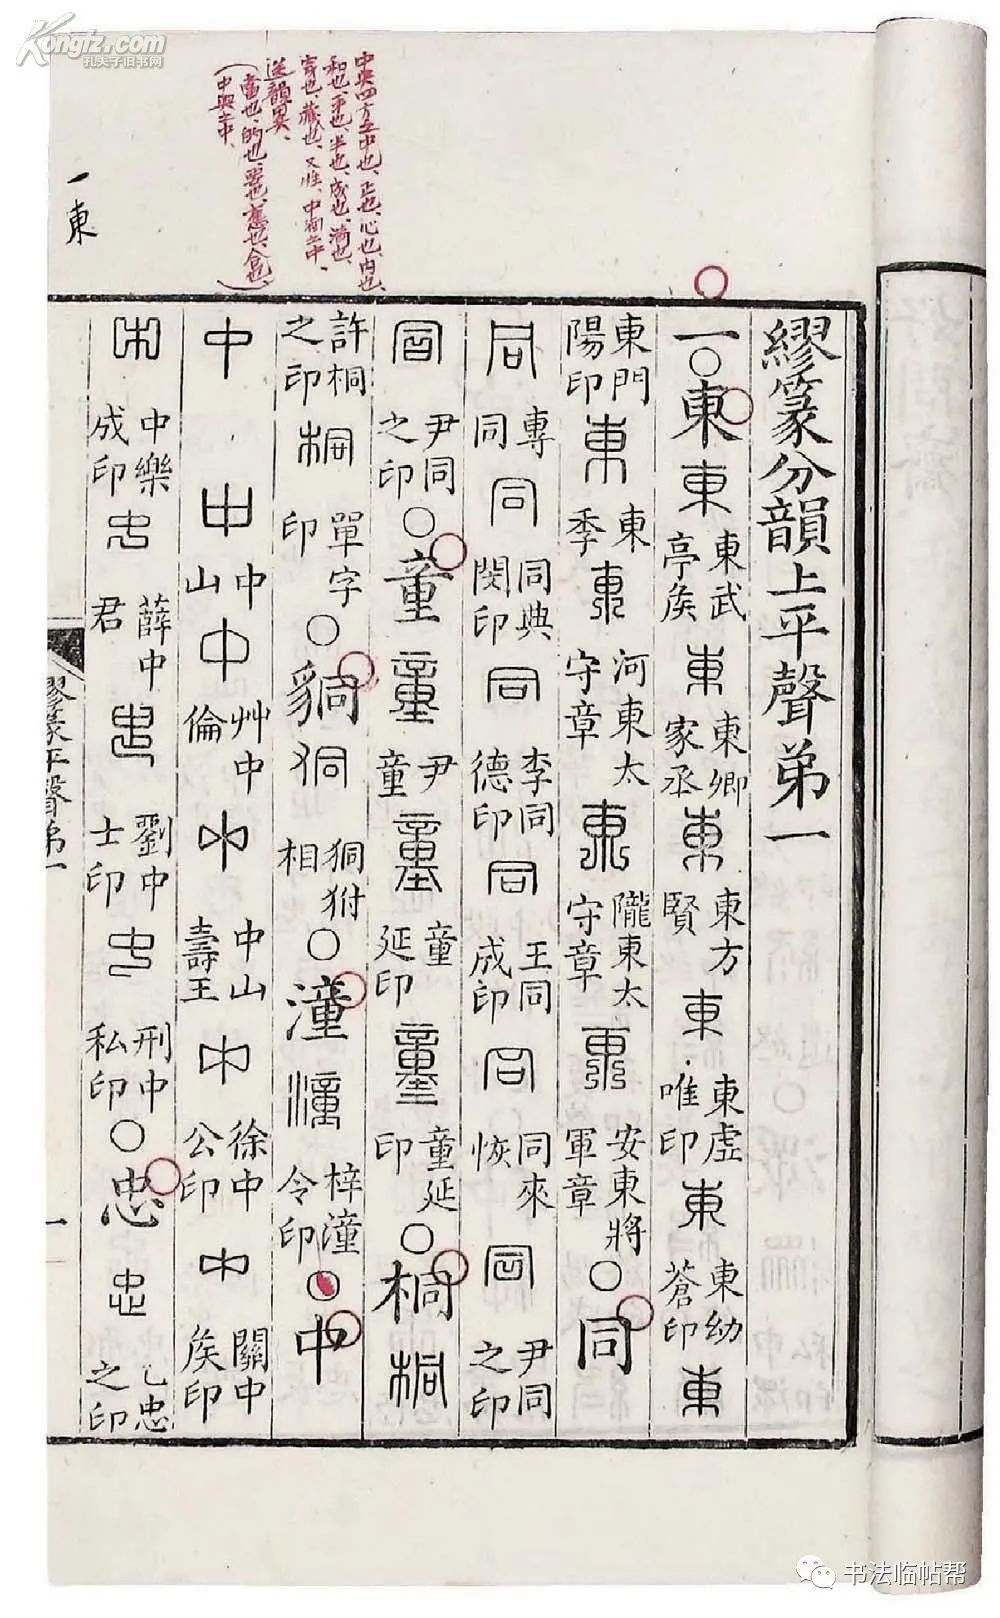 Kongfz.com
孔夫子旧书网
中央四方之中也、正也、心也、内也、
和也、平也、半也、成也、满也、
送韻異、
中央之中、
一東
繆篆分韻上平聲弟一
一〇東 東 東武亭矦 東 東鄉家丞 東 東方賢 東 東虛唯印 東 東幼蒼印 東
東門陽印 東 東季 東 河東太守章 東 隴東太守章 東 安東將軍章〇同
同 專同 同 同典閔印 同 李同德印 同 王同成印 同 同來恢 同 尹同之印
同 尹同之印〇童 童 尹童 童 童延印 童 童延印〇桐 桐
許桐之印 桐 單字印〇狪 狪 狪柎相〇潼 潼 梓潼令印〇中
中 中 中山 中 艸中倫 中 中山壽王 中 徐中公印 中 關中矦印
中 中樂成印 中 薛中君 中 劉中士印 中 刑中私印〇忠 忠 乙忠之印
繆篆平聲弟一
一
书法临帖帮